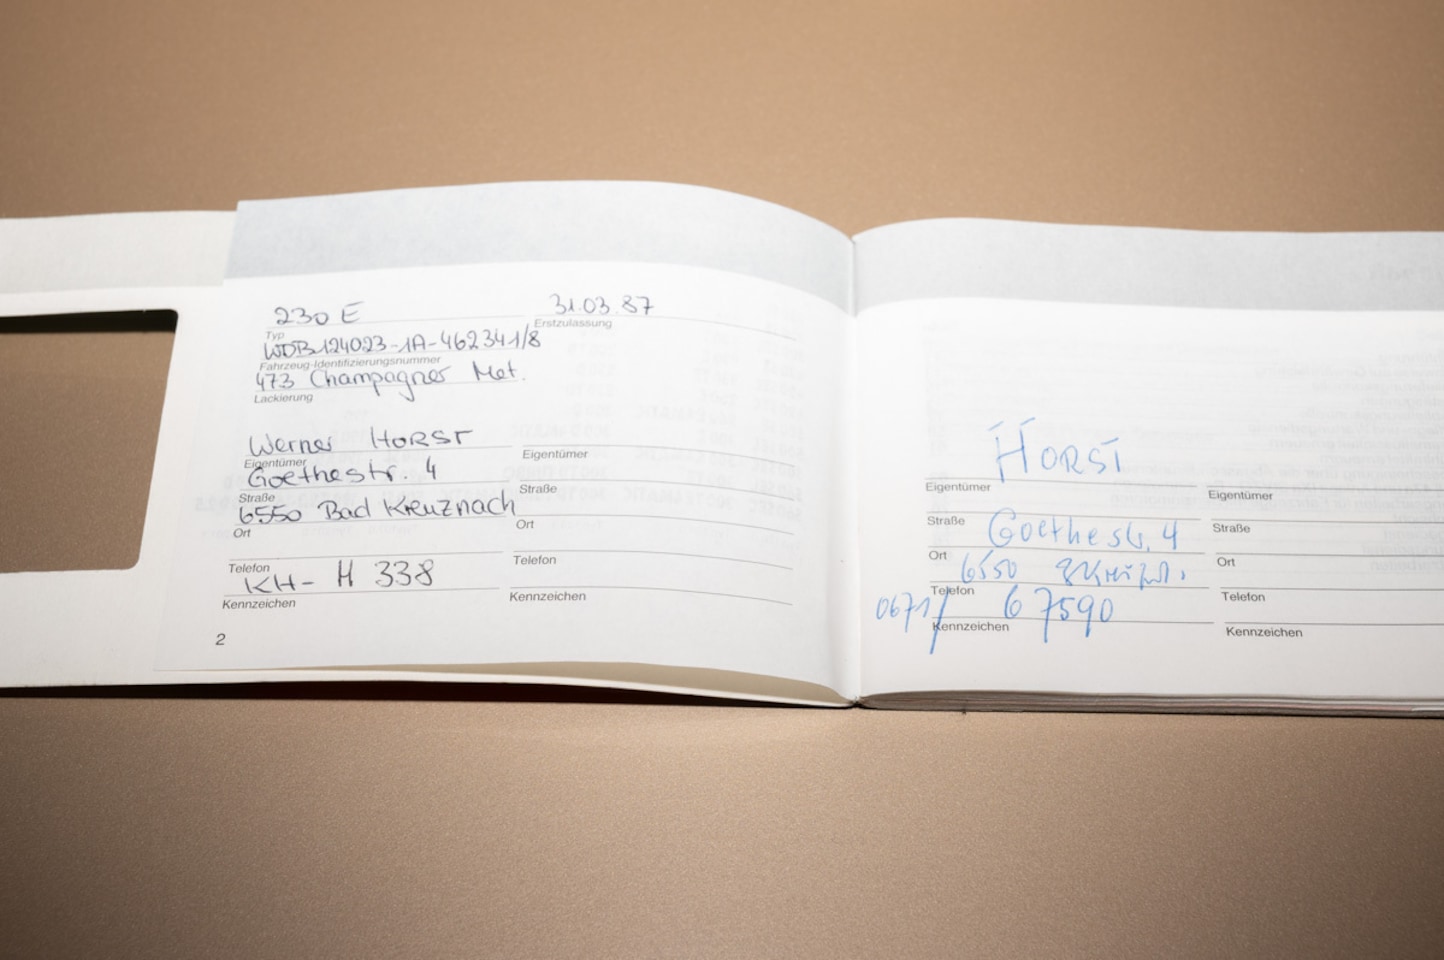 230 E 31.03.87
Typ Erstzulassung
WDB124023-1A-462341/8
Fahrzeug-Identifizierungsnummer
473 Champagner Met.
Lackierung
Werner HORST
Eigentümer Eigentümer
Goethestr. 4
Straße Straße
6550 Bad Kreuznach
Ort Ort
Telefon Telefon
KH- H 338
Kennzeichen Kennzeichen
2
HORST
Eigentümer Eigentümer
Straße Goethestr. 4 Straße
Ort 6550 Ort
Telefon Telefon
0671/ 67590
Kennzeichen Kennzeichen